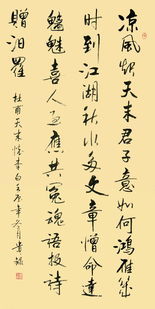 凉風起天末君子意如何鴻雁幾
時到江湖秋水多文章憎命達
魑魅喜人過應共冤魂語投詩
贈汨羅
杜甫天末懷李白